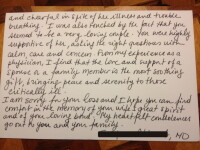 and cheerful in spite of her illness and trouble
breathing. I was also touched by the fact that you
seemed to be a very loving couple. You were highly
supportive of her, asking the right questions with
calm, care and concern. From my experience as a
physician, I find that the love and support of a
spouse or a family member is the most soothing
gift, bringing peace and serenity to those
critically ill.
I am sorry for your loss and I hope you can find
comfort in the memory of your wife's great spirit
and of your loving bond. My heartfelt condolences
go out to you and your family.
MD